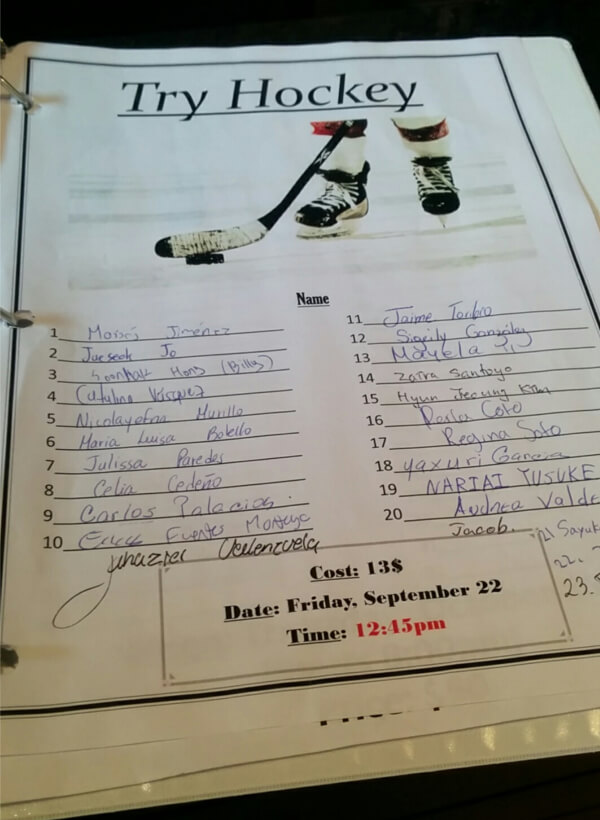 Try Hockey
Name
1 Moisés Jiménez
2 Jueseok Jo
3 Hong (Billy)
4 Catalina Vásquez
5 Murillo
6 Maria Luisa Botello
7 Julissa Paredes
8 Celia Cedeño
9 Carlos Palacios.
10 Erick Fuentes
Valenzuela
11 Jaime Toribio
12 González
13
14 Zaira Santoyo
15 Hyun Jeoung Kim
16 Perla Coto
17 Regina Soto
18 yaxuri Garcia
19 NARIAI YUSUKE
20 Andrea
Jacob.
21 Sayuk
22.
23.
Cost: 13$
Date: Friday, September 22
Time: 12:45pm